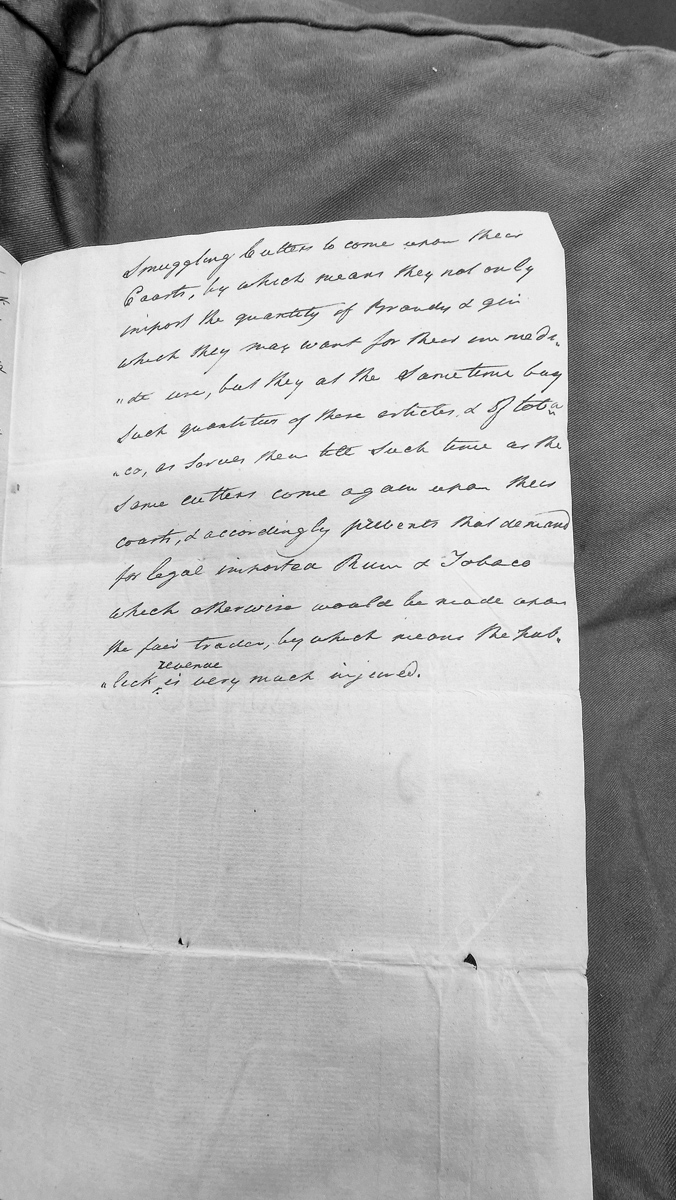 Smuggling Cutters to come upon their
Coasts, by which means they not only
import the quantity of Brandy & gin
which they may want for their immedi„
„ate use, but they at the Same time buy
Such quantities of these articles, & of toba„
„co, as Serves them till Such time as the
Same cutters come again upon their
coasts, & accordingly prevents that demand
for legal imported Rum & Tobaco
which otherwise would be made upon
the fair trader, by which means the pub„
revenue
„lick ^ is very much injured.